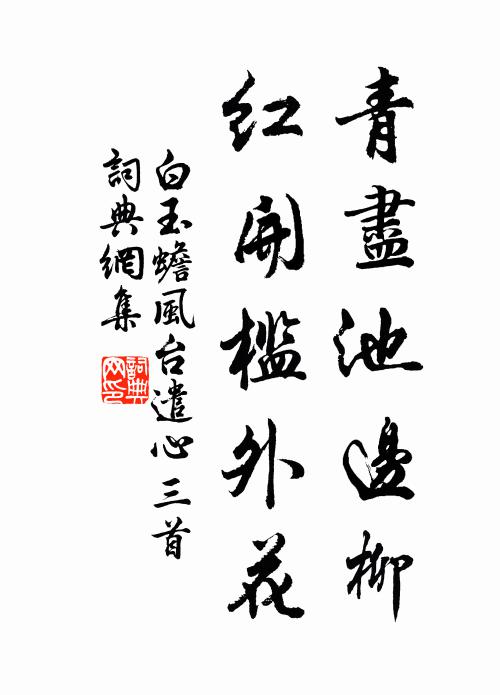 青盡池邊柳
紅開檻外花
白玉蟾風台遣心三首
詞典網集
詞典網印